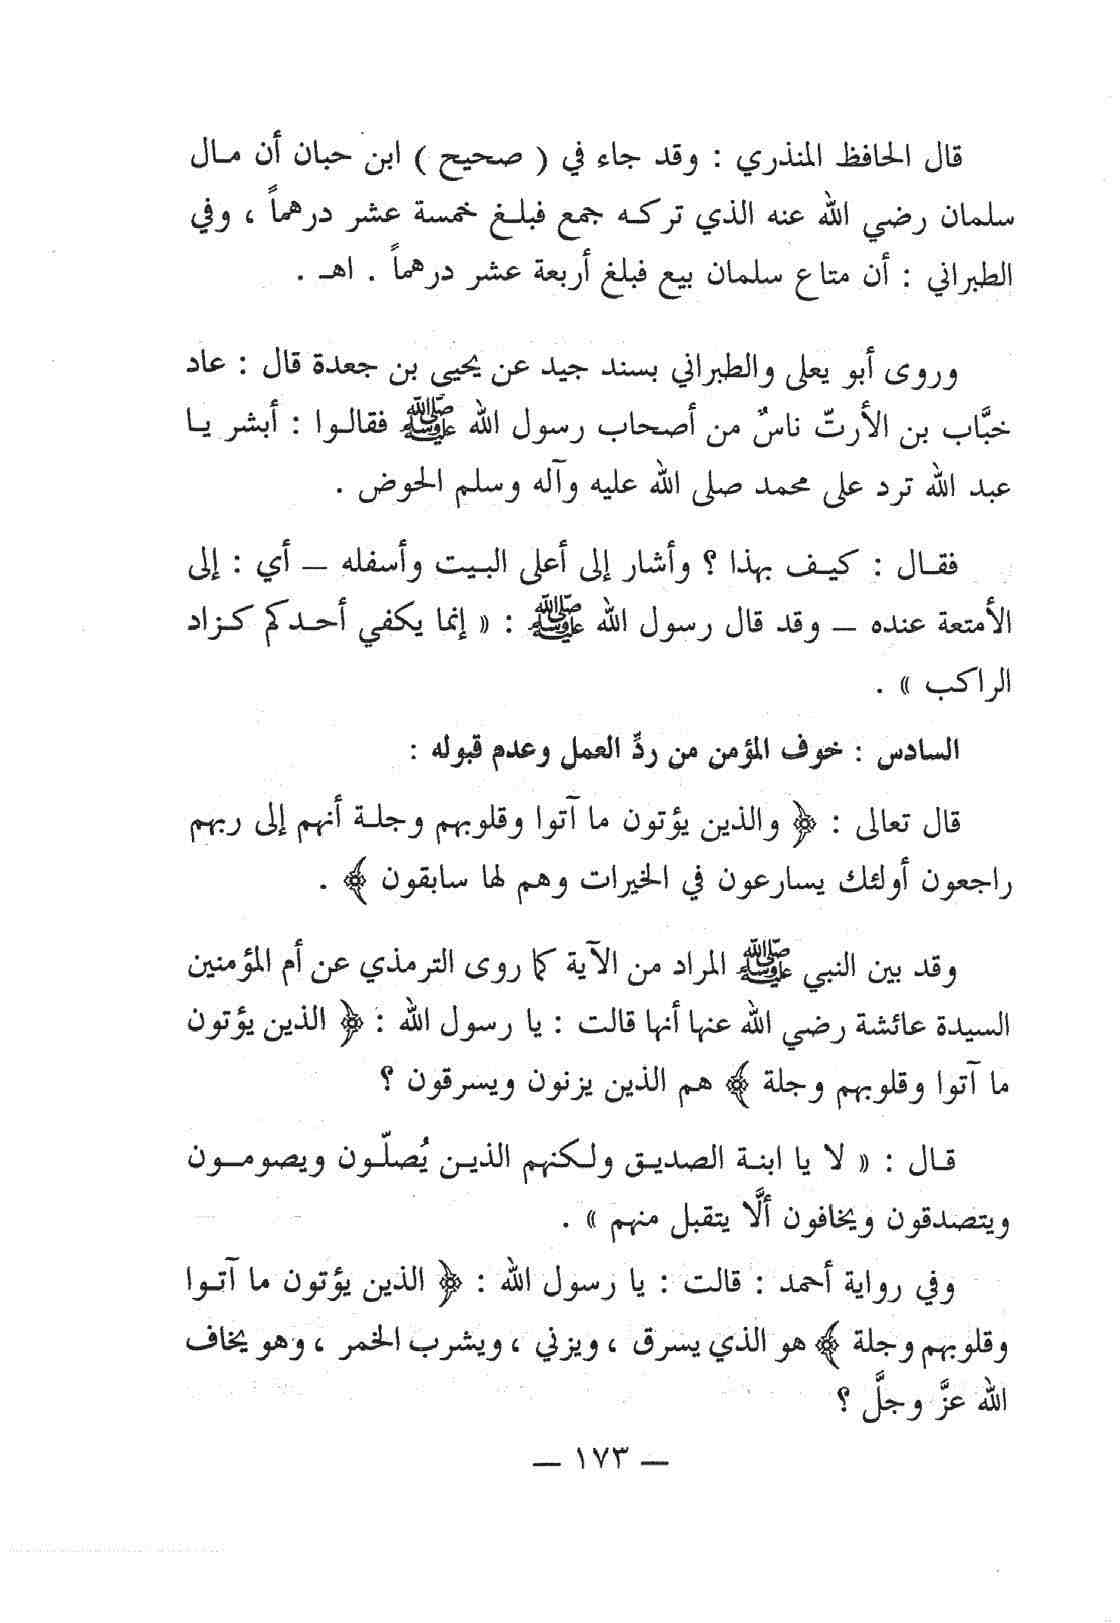 قال الحافظ المنذري : وقد جاء في ( صحيح ) ابن حبان أن مال
سلمان رضي الله عنه الذي تركه جمع فبلغ خمسة عشر درهماً ، وفي
الطبراني : أن متاع سلمان بيع فبلغ أربعة عشر درهماً . اهـ .
وروى أبو يعلى والطبراني بسند جيد عن يحيى بن جعدة قال : عاد
خبَّاب بن الأرتّ ناسٌ من أصحاب رسول الله ﷺ فقالوا : أبشر يا
عبد الله ترد على محمد صلى الله عليه وآله وسلم الحوض .
فقال : كيف بهذا ؟ وأشار إلى أعلى البيت وأسفله – أي : إلى
الأمتعة عنده – وقد قال رسول الله ﷺ : « إنما يكفي أحدكم كزاد
الراكب » .
السادس : خوف المؤمن من ردِّ العمل وعدم قبوله :
قال تعالى : ﴿ والذين يؤتون ما آتوا وقلوبهم وجلة أنهم إلى ربهم
راجعون أولئك يسارعون في الخيرات وهم لها سابقون ﴾ .
وقد بين النبي ﷺ المراد من الآية كما روى الترمذي عن أم المؤمنين
السيدة عائشة رضي الله عنها أنها قالت : يا رسول الله : ﴿ الذين يؤتون
ما آتوا وقلوبهم وجلة ﴾ هم الذين يزنون ويسرقون ؟
قال : « لا يا ابنة الصديق ولكنهم الذين يُصلّون ويصومون
ويتصدقون ويخافون ألَّا يتقبل منهم » .
وفي رواية أحمد : قالت : يا رسول الله : ﴿ الذين يؤتون ما آتوا
وقلوبهم وجلة ﴾ هو الذي يسرق ، ويزني ، ويشرب الخمر ، وهو يخاف
الله عزَّ وجلَّ ؟
– ١٧٣ –